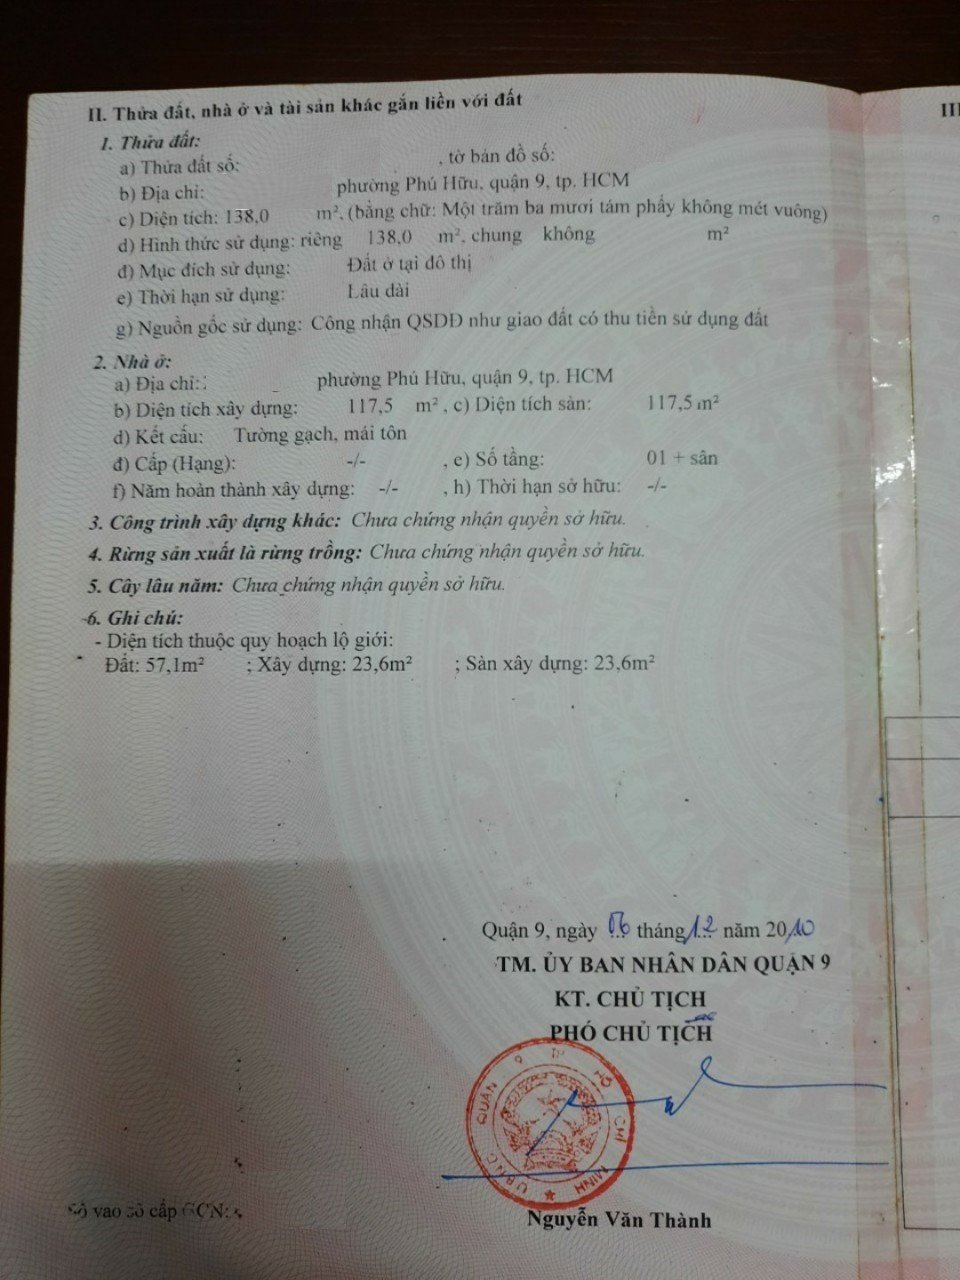 II. Thửa đất, nhà ở và tài sản khác gắn liền với đất
III
1. Thửa đất:
a) Thửa đất số: , tờ bản đồ số:
b) Địa chỉ: phường Phú Hữu, quận 9, tp. HCM
c) Diện tích: 138,0 m², (bằng chữ: Một trăm ba mươi tám phẩy không mét vuông)
d) Hình thức sử dụng: riêng 138,0 m², chung không m²
đ) Mục đích sử dụng: Đất ở tại đô thị
e) Thời hạn sử dụng: Lâu dài
g) Nguồn gốc sử dụng: Công nhận QSDĐ như giao đất có thu tiền sử dụng đất
2. Nhà ở:
a) Địa chỉ: phường Phú Hữu, quận 9, tp. HCM
b) Diện tích xây dựng: 117,5 m² , c) Diện tích sàn: 117,5 m²
d) Kết cấu: Tường gạch, mái tôn
đ) Cấp (Hạng): -/- , e) Số tầng: 01 + sân
f) Năm hoàn thành xây dựng: -/- , h) Thời hạn sở hữu: -/-
3. Công trình xây dựng khác: Chưa chứng nhận quyền sở hữu.
4. Rừng sản xuất là rừng trồng: Chưa chứng nhận quyền sở hữu.
5. Cây lâu năm: Chưa chứng nhận quyền sở hữu.
6. Ghi chú:
- Diện tích thuộc quy hoạch lộ giới:
Đất: 57,1m² ; Xây dựng: 23,6m² ; Sàn xây dựng: 23,6m²
Quận 9, ngày 06 tháng 12 năm 2010
TM. ỦY BAN NHÂN DÂN QUẬN 9
KT. CHỦ TỊCH
PHÓ CHỦ TỊCH
U.B.N.D QUẬN 9 TP HỒ CHÍ MINH
Số vào sổ cấp GCN:
Nguyễn Văn Thành